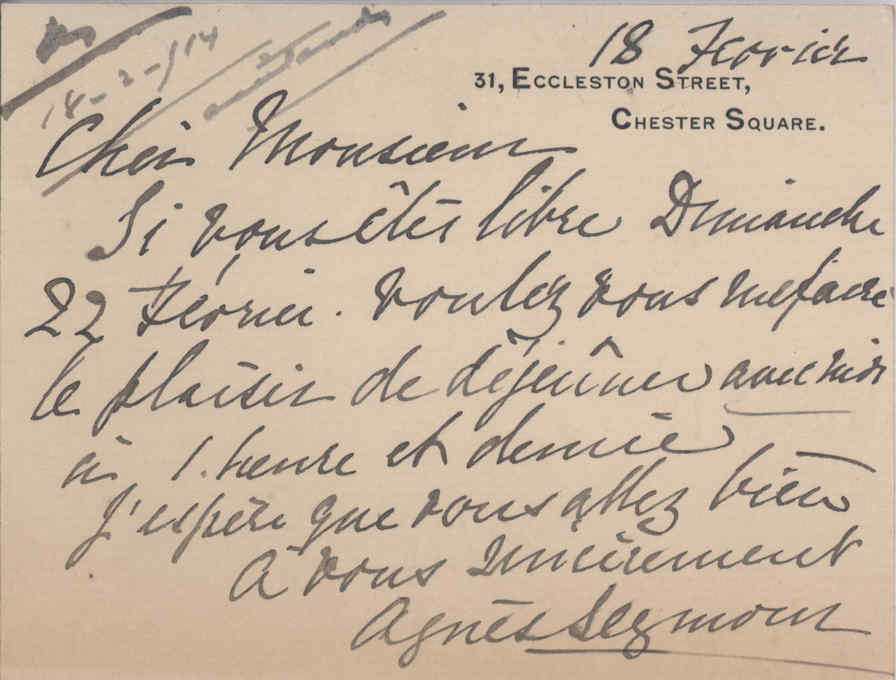 18-2-14
18 Fevrier
31, ECCLESTON STREET,
CHESTER SQUARE.
Cher Monsieur
Si vous êtes libre Dimanche
22 Février. voulez vous me faire
le plaisir de déjeûner avec moi
à 1. heure et demie
J'espère que vous allez bien
à vous sincèrement
Agnès Seymour